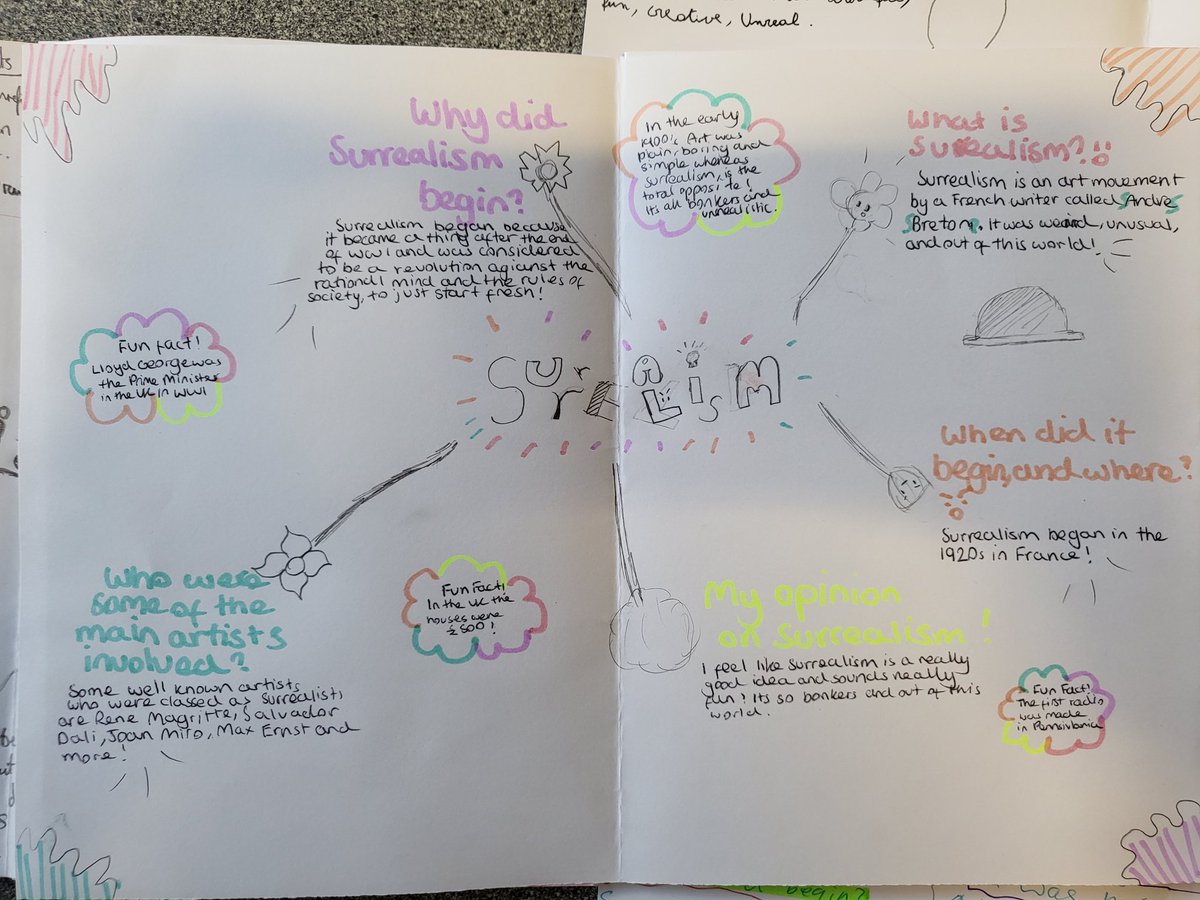 fun, creative, Unreal.
Why did
Surrealism
begin?
Surrealism began because
it became a thing after the end
of WW1 and was considered
to be a revolution agianst the
rational mind and the rules of
society, to just start fresh!
Fun fact!
Lloyd George was
the Prime Minister
in the UK in WW1
Who were
some of the
main artists
involved?
Some well known artists
who were classed as surrealists
are Rene Magritte, Salvador
Dali, Joan Miro, Max Ernst and
more!
Fun Fact!
In the UK the
houses were
£500!
SurrEALisM
In the early
1900's Art was
plain, boring and
simple whereas
surrealism, is the
total opposite!
Its all bonkers and
unrealistic.
What is
Surrealism?
Surrealism is an art movement
by a French writer called Andre
Breton. It was weird, unusual,
and out of this world!
When did it
begin, and where?
Surrealism began in the
1920s in France!
My opinion
on Surrealism!
I feel like Surrealism is a really
good idea and sounds really
fun! Its so bonkers and out of this
world.
Fun Fact!
The first radio
was made
in Pennsivlania
begin?